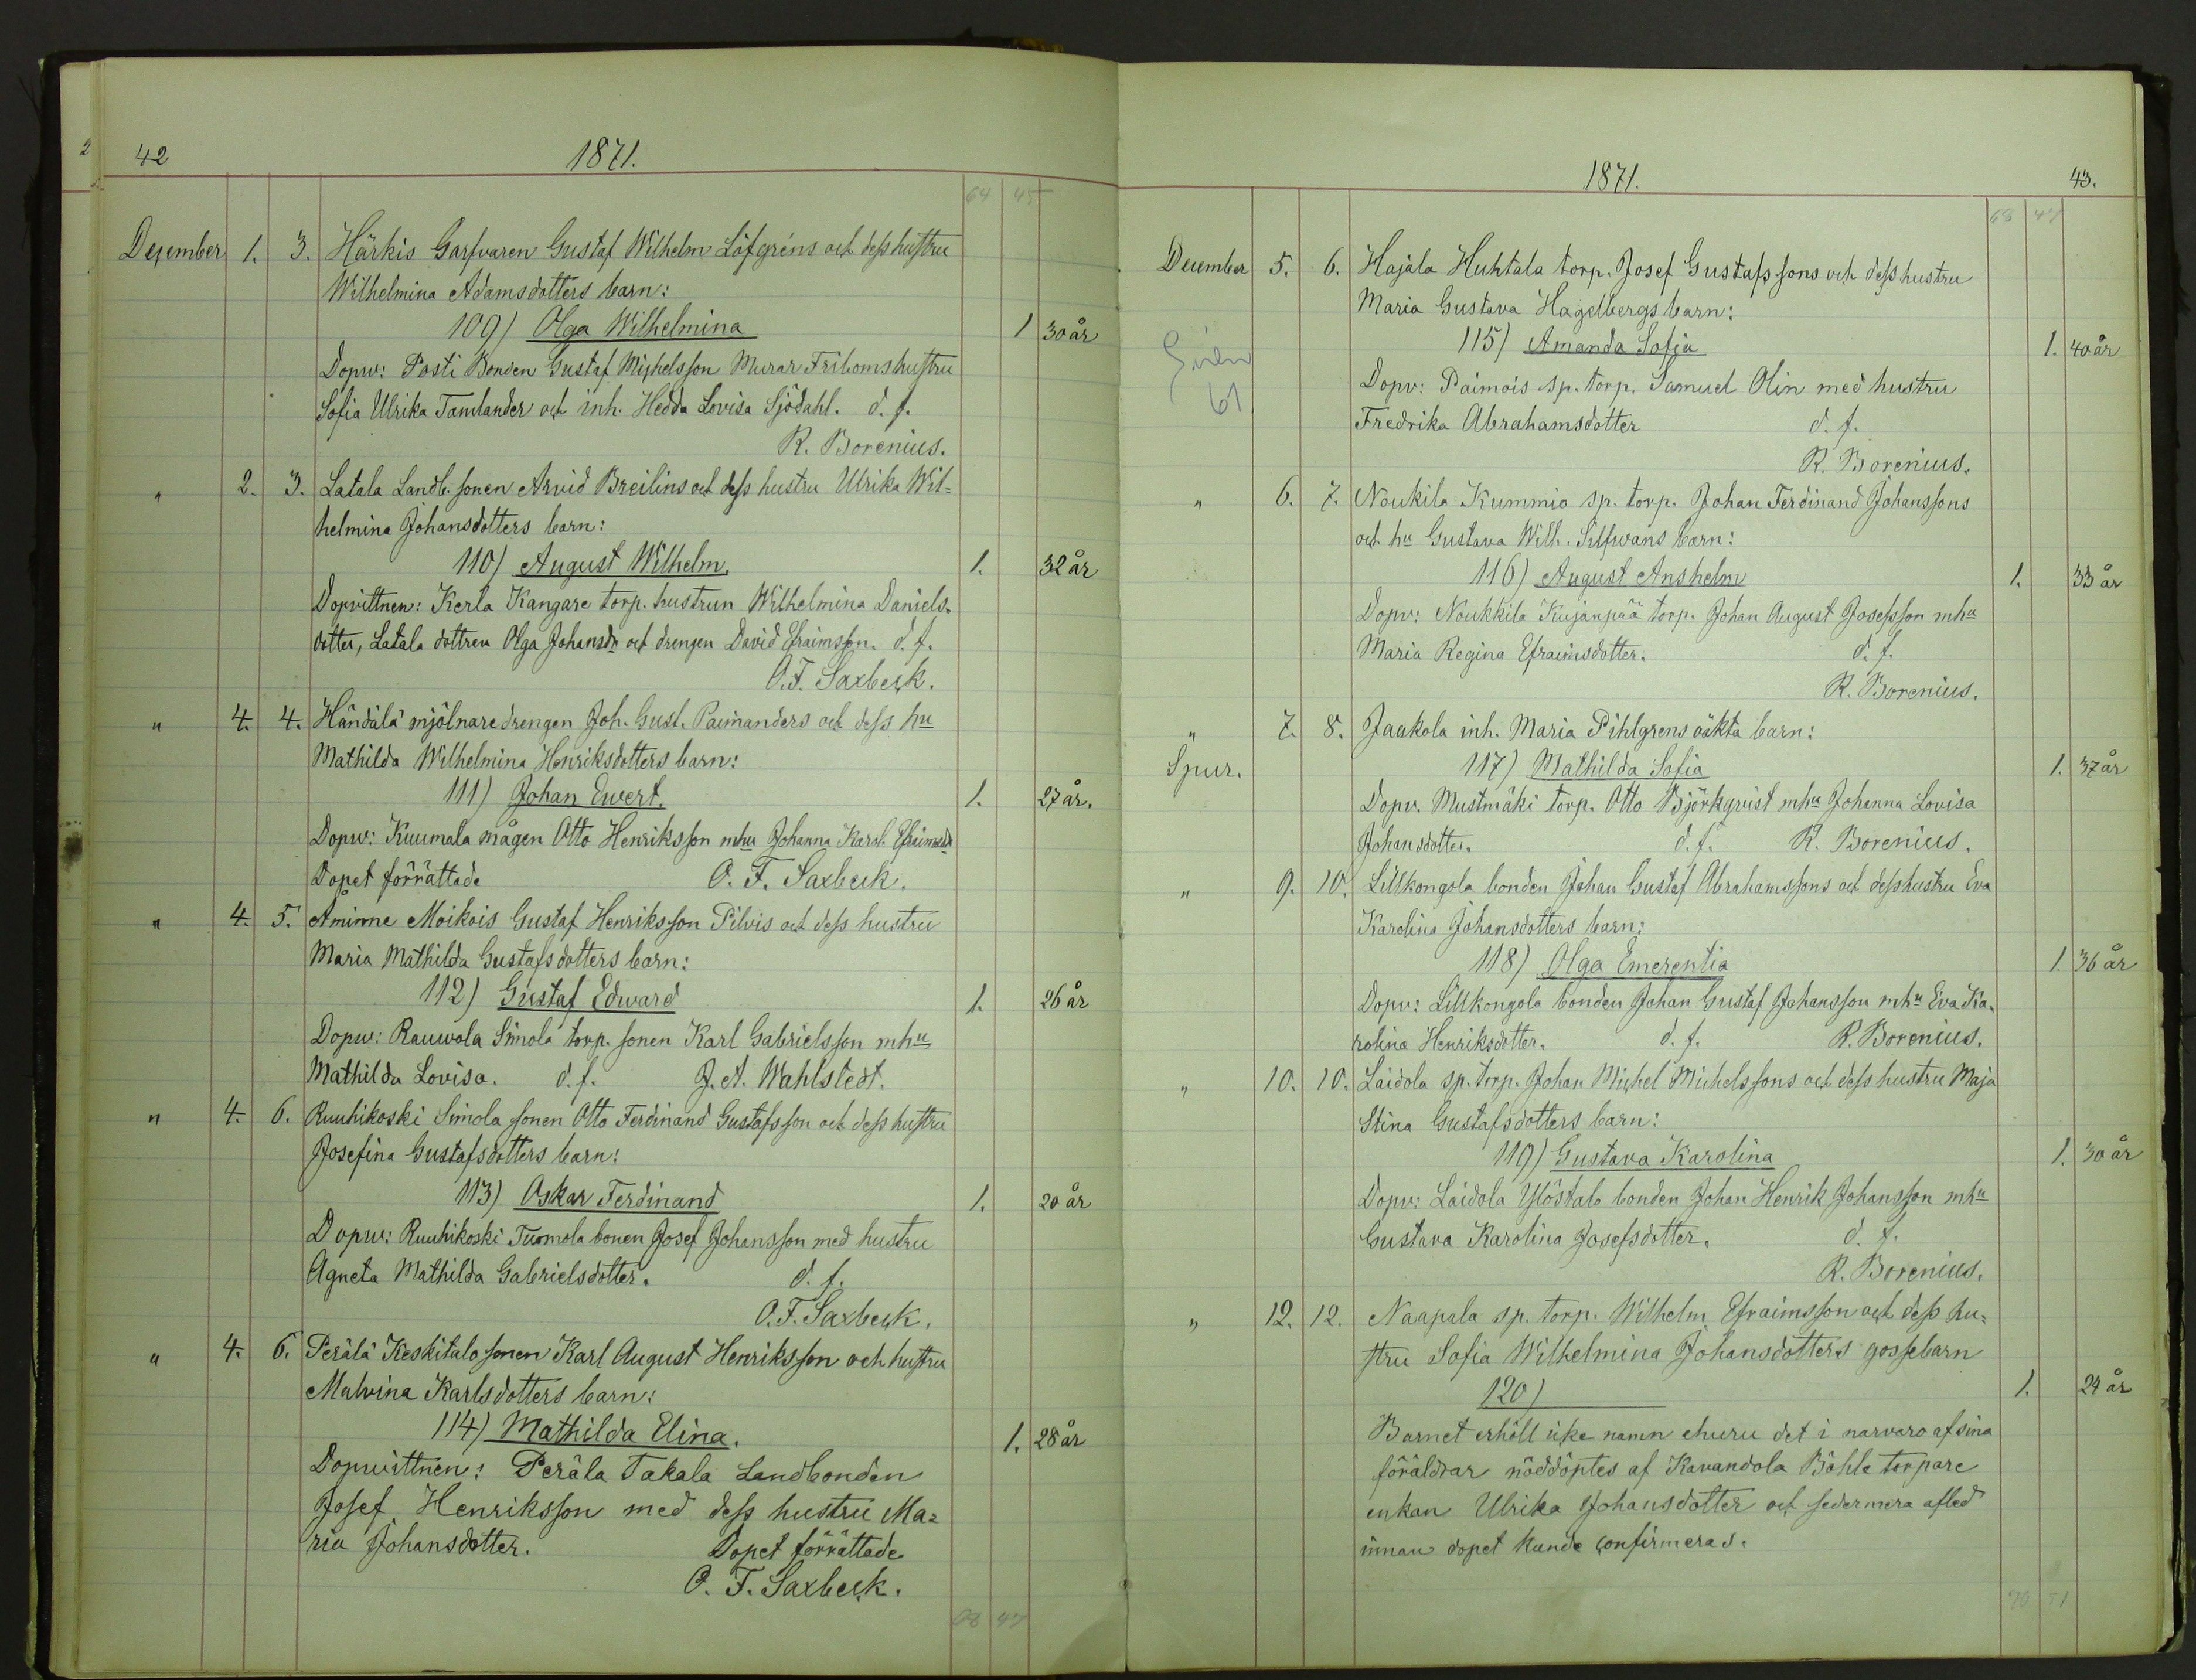 2
42
1871.
64 45
December 1. 3. Härkis Garfvaren Gustaf Wilhelm Löfgréns och dess hustru
Wilhelmina Adamsdotters barn:
109) Olga Wilhelmina 1 30 år
Dopw: Posti Bonden Gustaf Michelsson Murar Friboms hustru
Sofia Ulrika Tamlander och inh. Hedda Lovisa Sjödahl. d. f.
R. Borenius.
" 2. 3. Latala Landb. sonen Arvid Breilins och dess hustru Ulrika Wil=
helmina Johansdotters barn:
110) August Wilhelm. 1. 32 år
Dopvittnen: Kerla Kangare torp. hustrun Wilhelmina Daniels-
dotter, Latala dottren Olga Johansdr och drengen David Efraimsson. d. f.
O. F. Saxbeck.
" 4. 4. Händälä mjölnaredrengen Joh. Gust. Paimanders och dess hu
Mathilda Wilhelmina Henriksdotters barn:
111) Johan Ewert. 1. 27 år.
Dopw: Kuumala mågen Otto Henriksson mhu Johanna Karol. Efraimsdr
Dopet förrättade O. F. Saxbeck.
" 4. 5. Åminne Moikois Gustaf Henriksson Pilvis och dess hustru
Maria Mathilda Gustafsdotters barn:
112) Gustaf Edward 1. 26 år
Dopw: Rauwola Simola torp. sonen Karl Gabrielsson mhu
Mathilda Lovisa. d. f. J. A. Wahlstedt.
" 4. 6. Ruuhikoski Simola sonen Otto Ferdinand Gustafsson och dess hustru
Josefina Gustafsdotters barn:
113) Oskar Ferdinand 1. 20 år
Dopw: Ruuhikoski Tuomola bonen Josef Johansson med hustru
Agneta Mathilda Gabrielsdotter. d. f.
O. F. Saxbeck.
" 4. 6. Perälä Keskitalo sonen Karl August Henriksson och hustru
Malvina Karlsdotters barn:
114) Mathilda Elina. 1. 28 år
Dopwittnen: Peräla Takala Landbonden
Josef Henriksson med dess hustru Ma=
ria Johansdotter. Dopet förrättade
O. F. Saxbeck.
68 47
1871. 43.
68 47
December 5. 6. Hajala Huhtala torp. Josef Gustafssons och dess hustru
Maria Gustava Hagelbergs barn:
115) Amanda Sofia 1. 40 år
Dopv: Paimois sp. torp. Samuel Olin med hustru
61
Fredrika Abrahamsdotter d. f.
R. Borenius.
" 6. 7. Noukila Kummio sp. torp. Johan Ferdinand Johanssons
och hu Gustava Wilh. Silfwans barn:
116) August Anshelm 1. 33 år
Dopw: Noukkila Kujanpää torp. Johan August Josefsson mhu
Maria Regina Efraimsdotter. d. f.
R. Borenius.
" 7. 8. Jaakola inh. Maria Pihlgrens oäkta barn:
Spur. 117) Mathilda Sofia 1. 37 år
Dopv. Mustmäki torp. Otto Björkqvist mhu Johanna Lovisa
Johansdotter. d. f. R. Borenius.
" 9. 10. Lillkongola bonden Johan Gustaf Abrahamssons och dess hustru Eva
Karolina Johansdotters barn:
118) Olga Emerentia 1. 36 år
Dopv: Lillkongola bonden Johan Gustaf Johansson mhu Eva Ka-
rolina Henriksdotter. d. f. R. Borenius.
" 10. 10. Laidola sp. torp. Johan Michel Michelssons och dess hustru Maja
Stina Gustafsdotters barn:
119) Gustava Karolina 1. 30 år
Dopv: Laidola Ylöstalo bonden Johan Henrik Johansson mhu
Gustava Karolina Josefsdotter. d. f.
R. Borenius.
" 12. 12. Naapala sp. torp. Wilhelm Efraimsson och dess hu=
stru Sofia Wilhelmina Johansdotters gossebarn
120) 1. 24 år
Barnet erhöll icke namn ehuru det i narvaro af sina
föräldrar nöddöptes af Kavandola Böhle torpare
enkan Ulrika Johansdotter och sedermera afled
innan dopet kunde confirmeras.
70 51